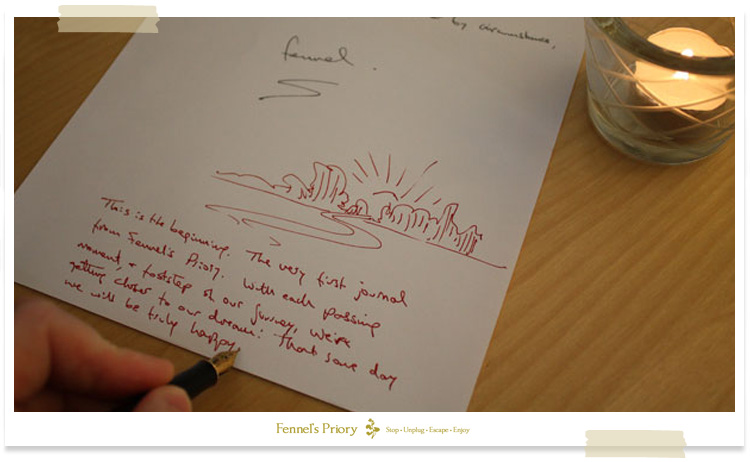 by circumstances,
Fennel.
This is the beginning. The very first journal
from Fennel's Priory. With each passing
moment, & footstep of our journey, we're
getting closer to our dream: that some day
we will be truly happy
Fennel's Priory
Stop • Unplug • Escape • Enjoy